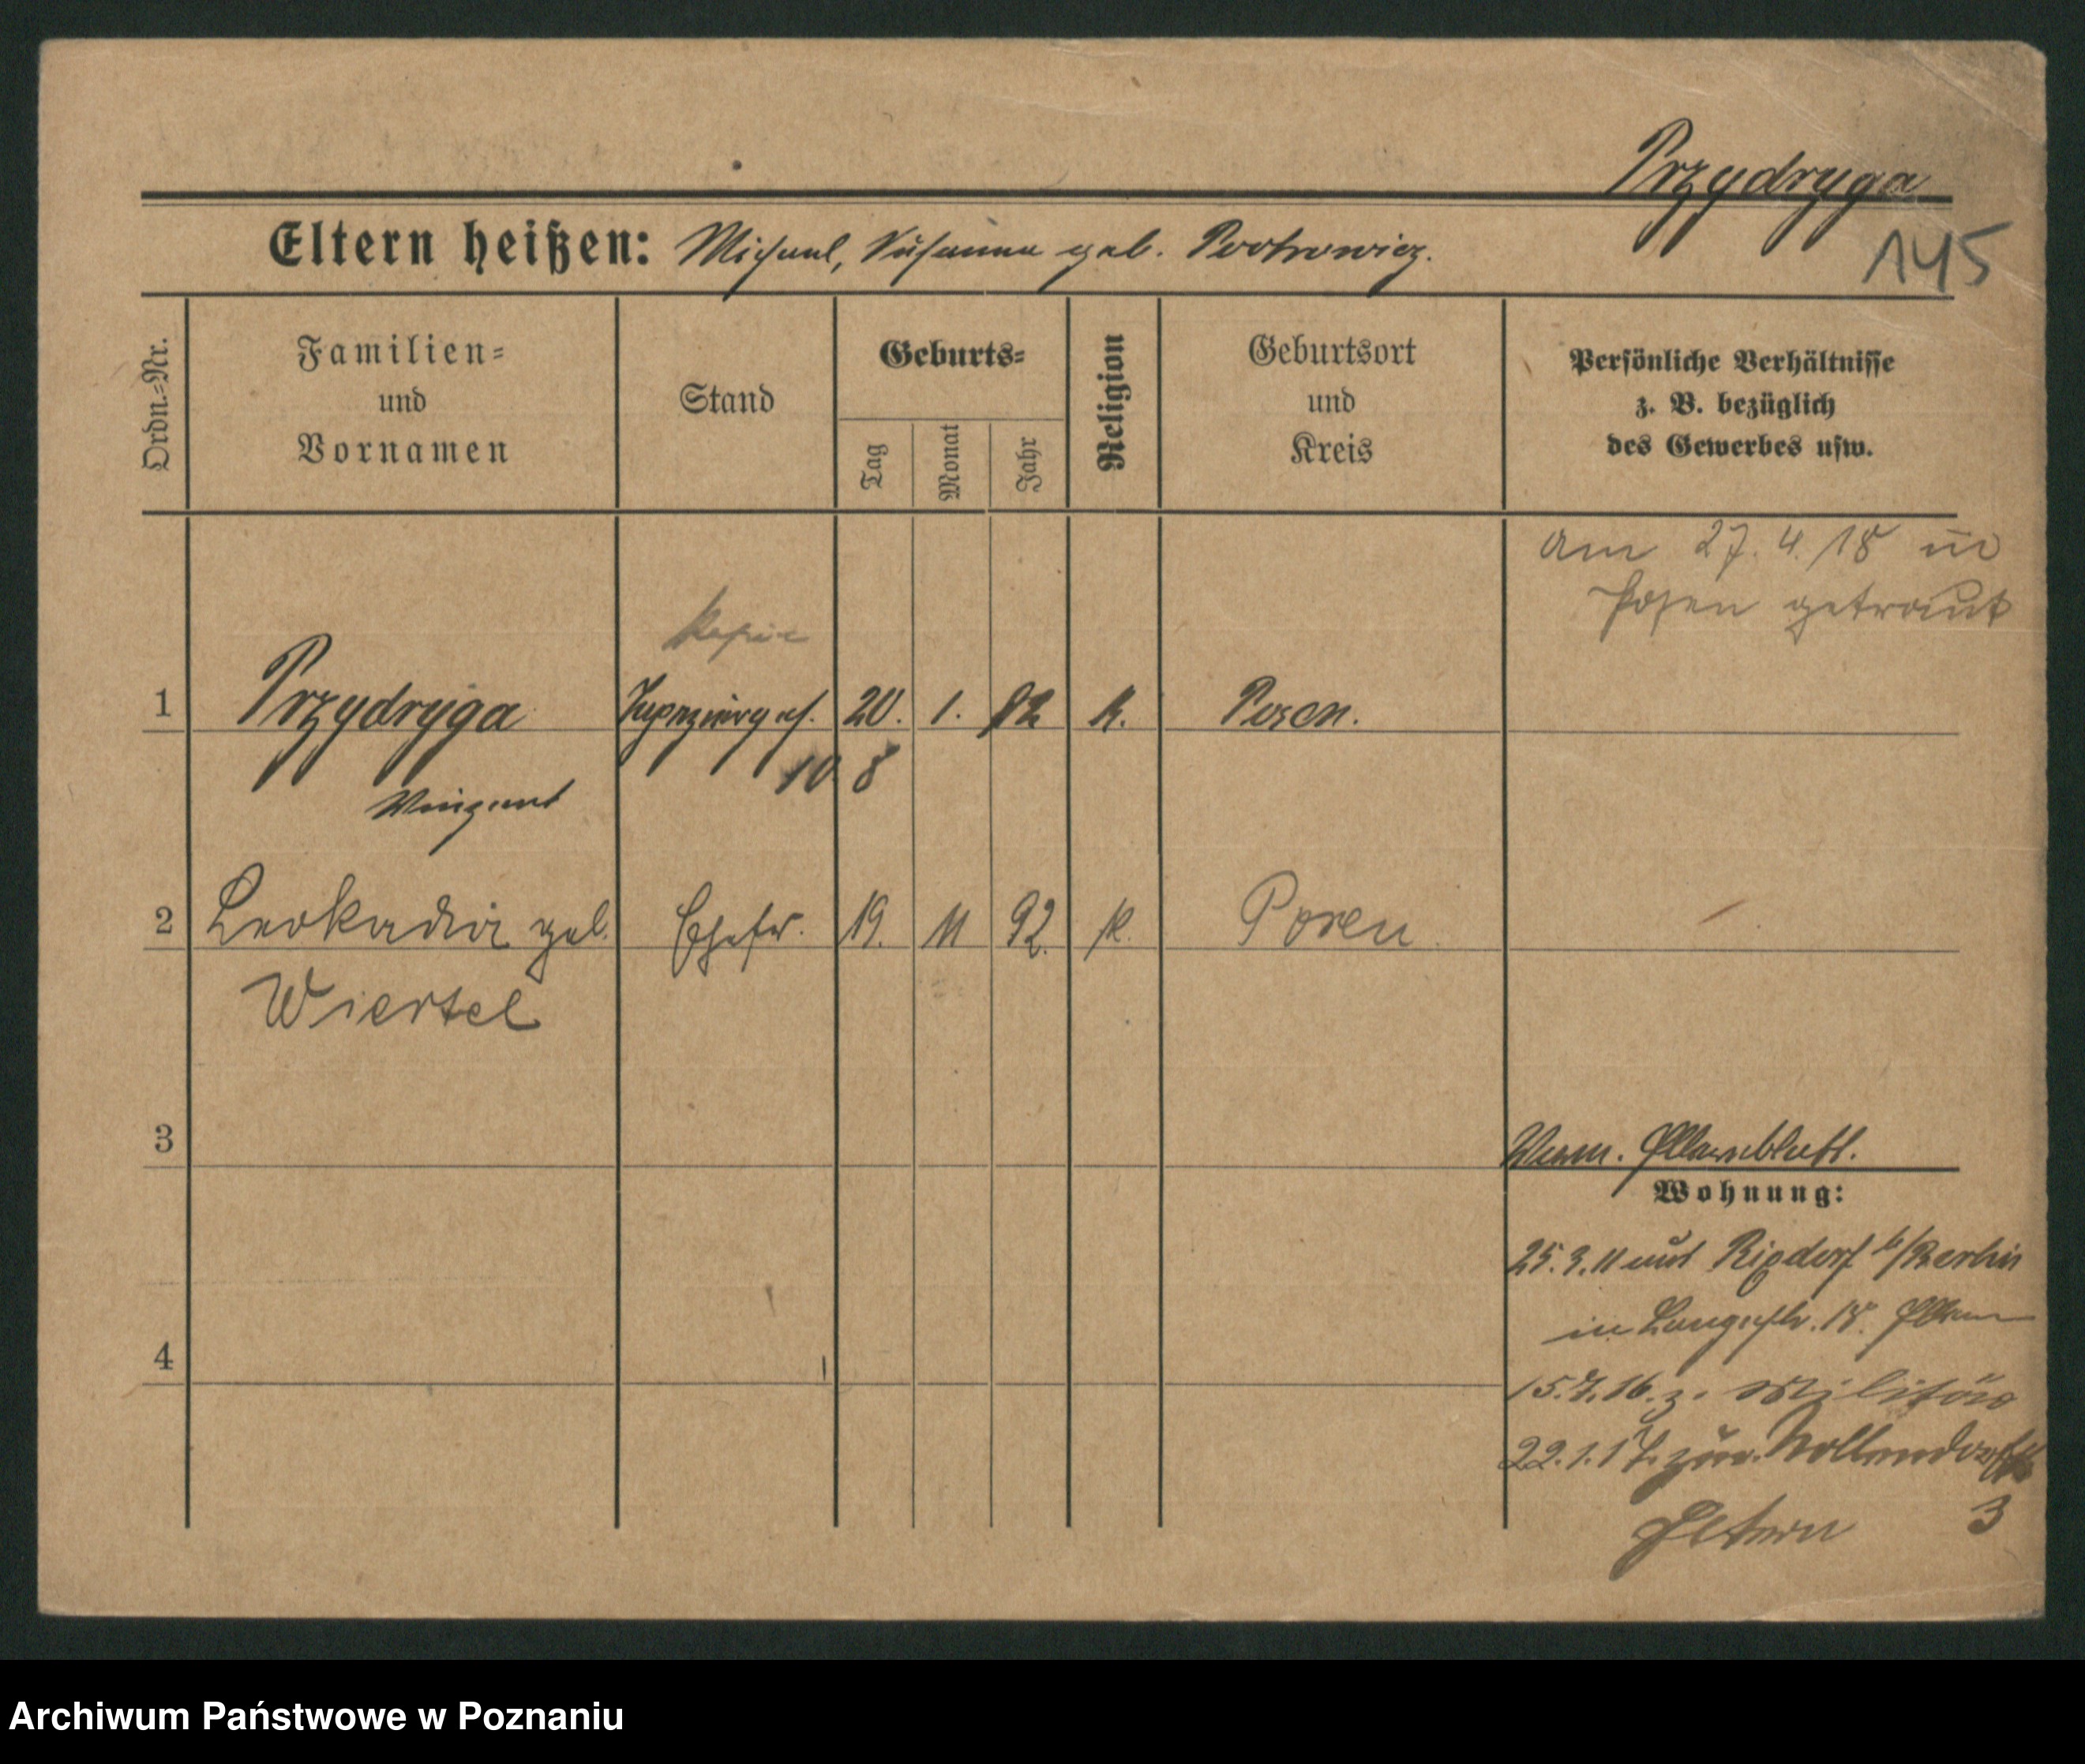 Przydryga
Eltern heißen: Michael, Susanna geb. Piotrowicz.
145
Ordn.-Nr.
Familien-
und
Vornamen
Stand
Geburts-
Tag
Monat
Jahr
Religion
Geburtsort
und
Kreis
Persönliche Verhältnisse
z. B. bezüglich
des Gewerbes usw.
am 27.4.18 in
Posen getraut
1 Przydryga 20. 1. 82 k. Posen.
10 8
Vinzent
2 Leokadia geb. Ehefr. 19. 11 92. k. Posen
Wiertel
3
4
Wohnung:
25.3.11 aus Rixdorf b/Berlin
in Langestr. 18.
15.7.16. z. Militär
22.1.17. zur. Nollendorfstr
Eltern 3
Archiwum Państwowe w Poznaniu